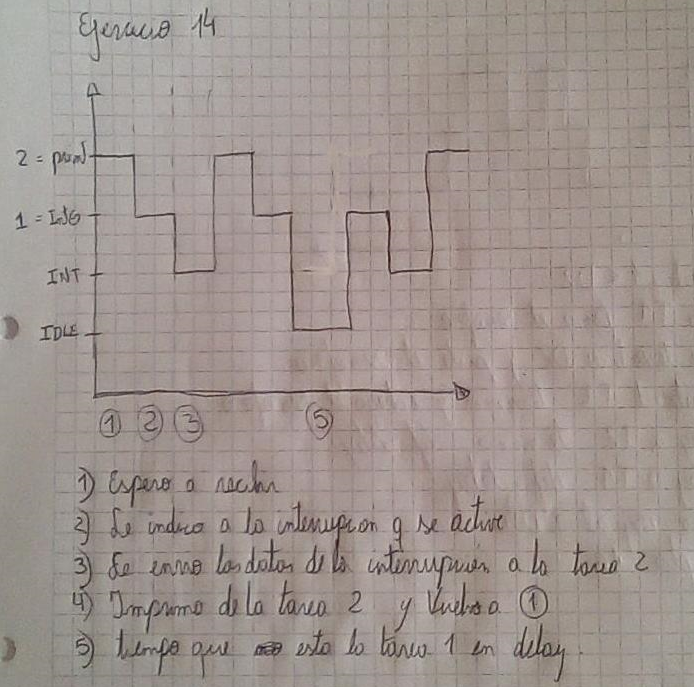 Ejercicio 14
2 = print
1 = ING
INT
IDLE
① ② ③ ⑤
1) Espero a recibir
2) Le indico a la interrupcion q se active
3) Le envio los datos de la interrupción a la tarea 2
4) Imprimo de la tarea 2 y Vuelvo a ①
5) tiempo que esta la tarea 1 en delay.